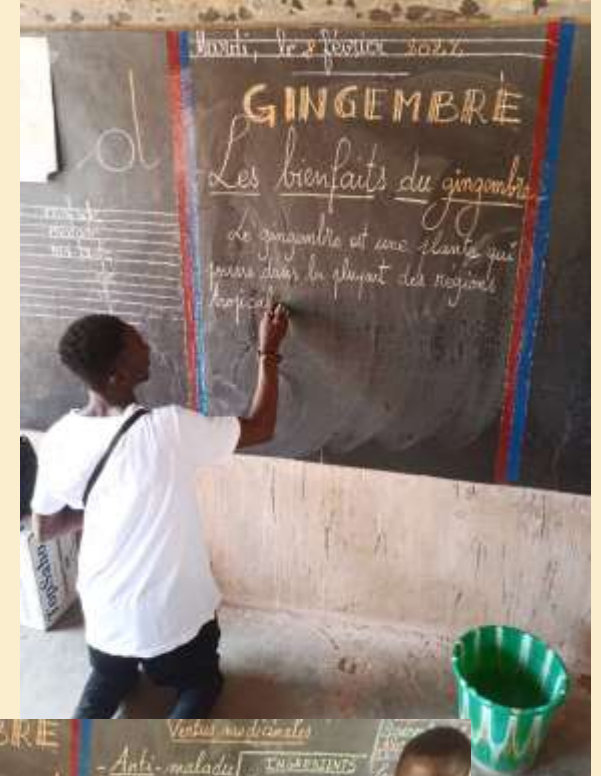 Mardi, le 8 février 2022
GINGEMBRE
Les bienfaits du gingembre
Le gingembre est une plante qui
pousse dans la plupart des régions
tropical
d
BRE
Vertus médicinales
- Anti-maladie
INGREDIENTS